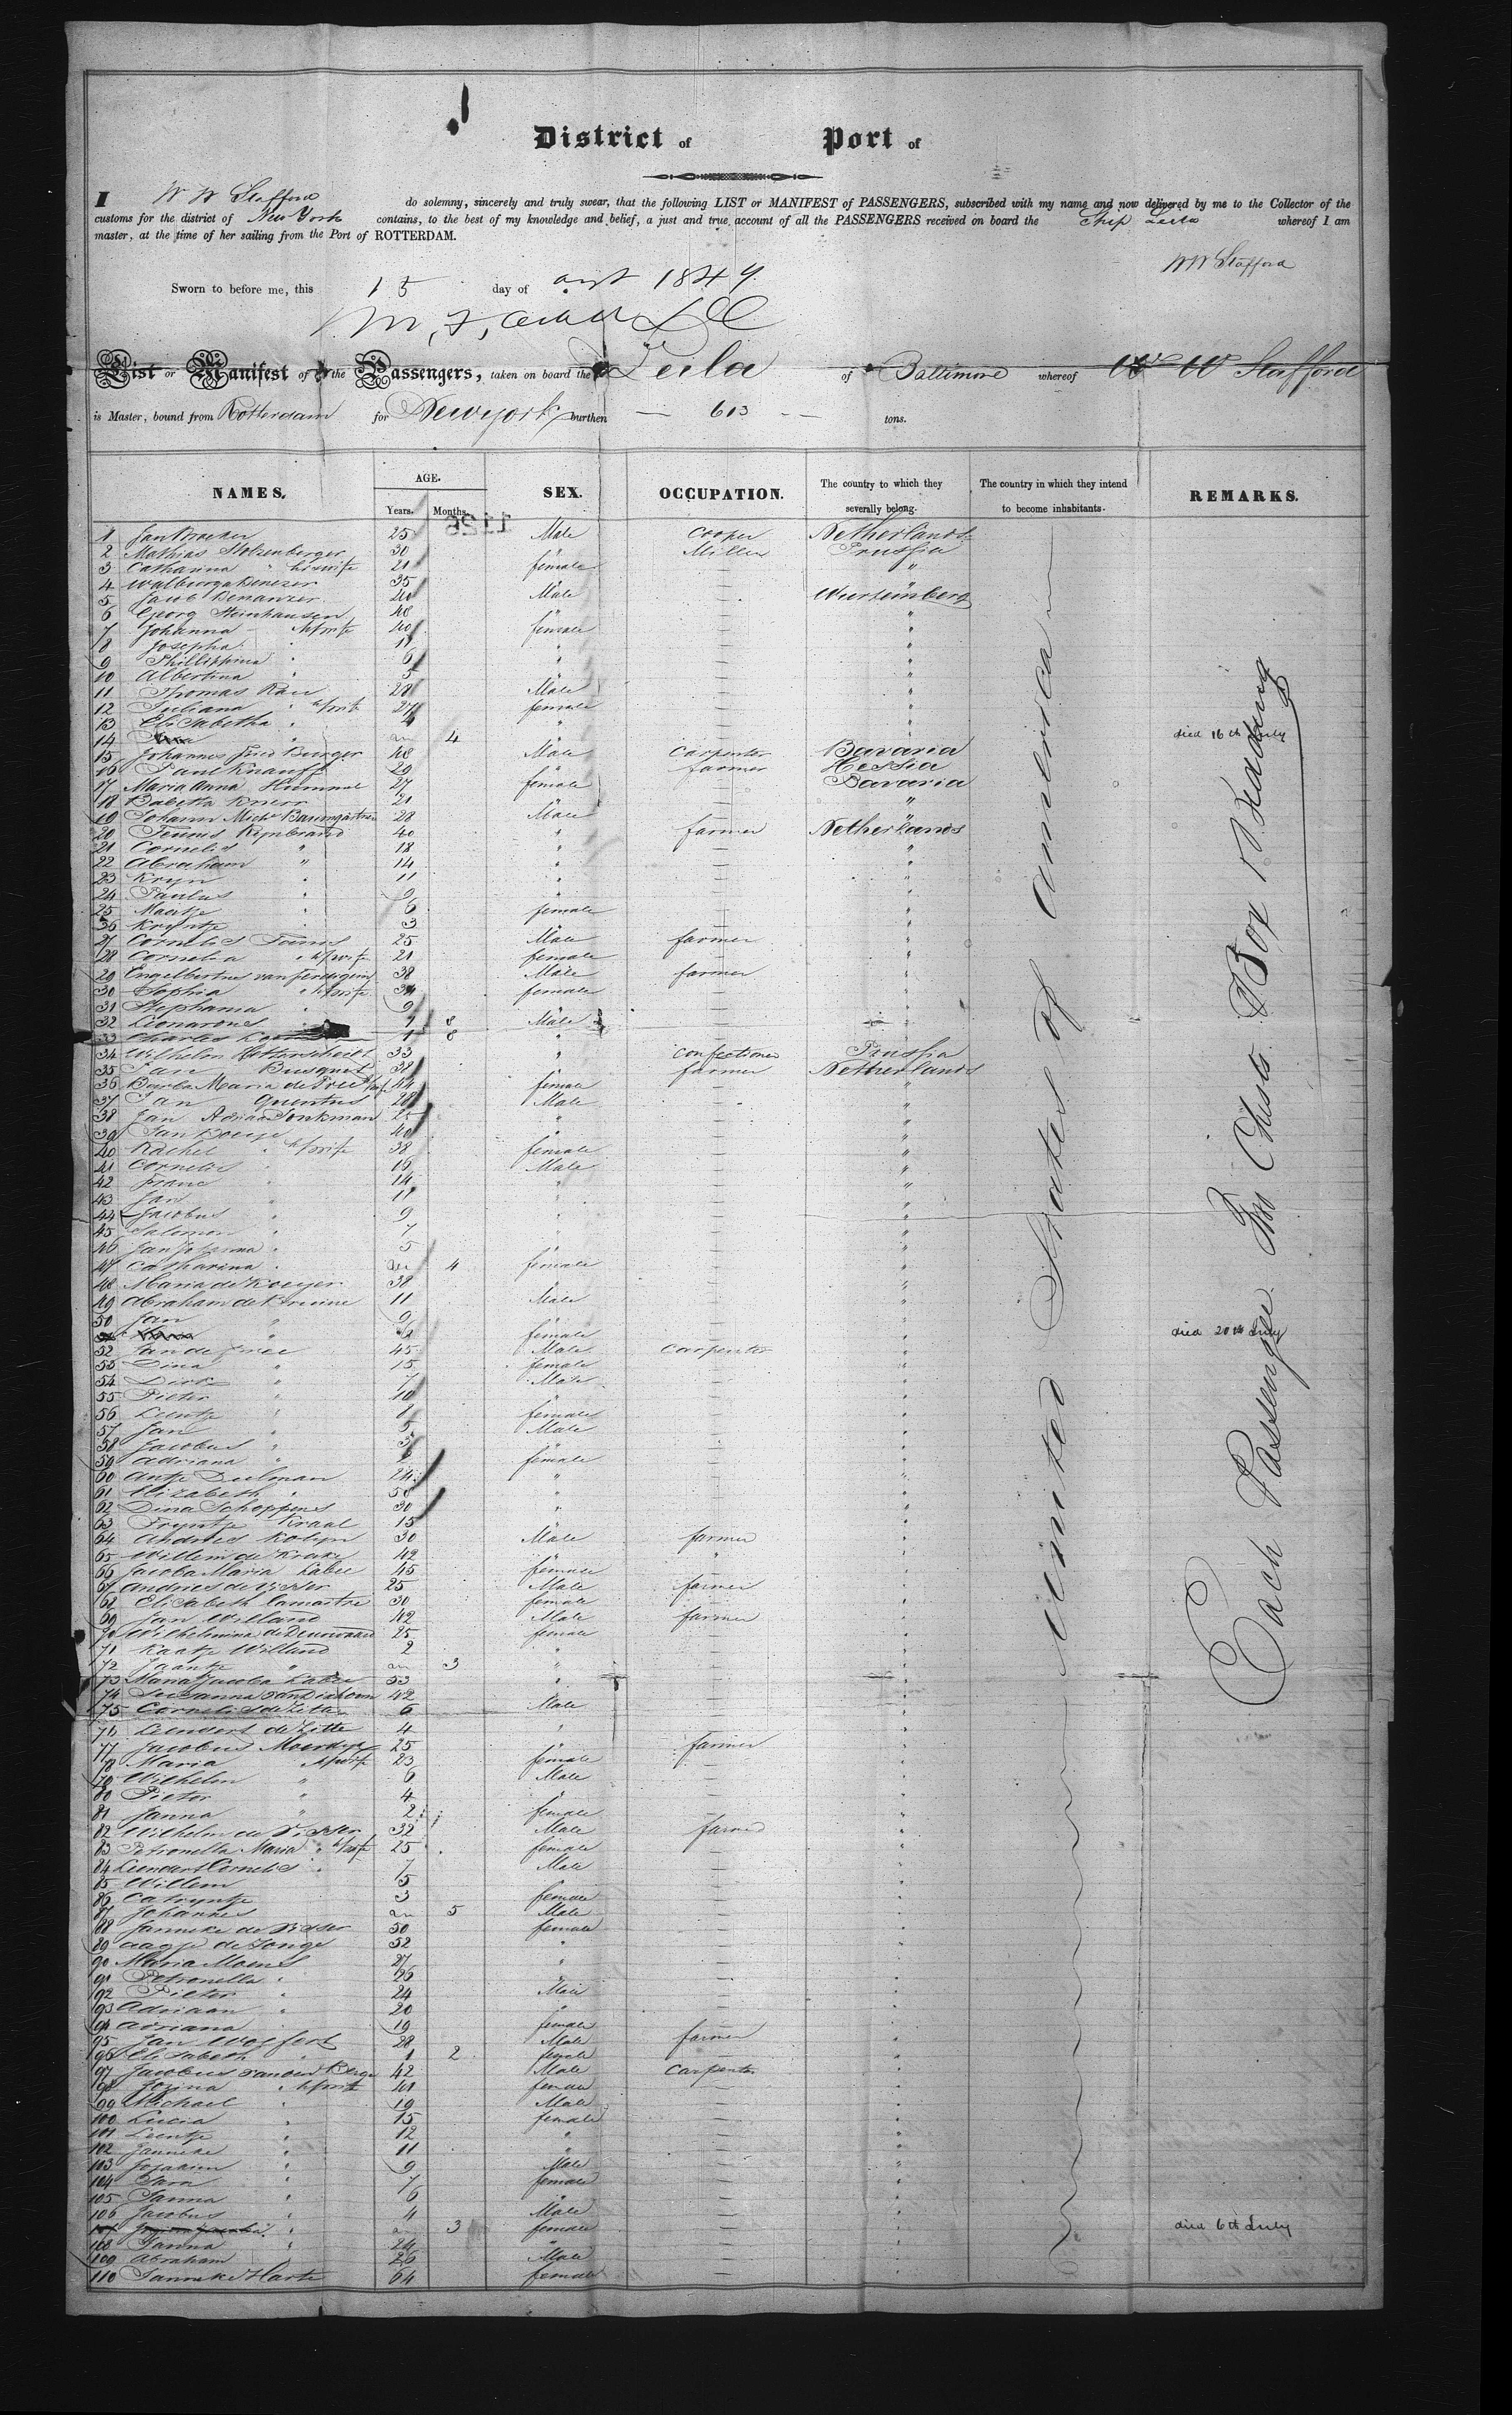 District of Port of
I W W Stafford do solemny, sincerely and truly swear, that the following LIST or MANIFEST of PASSENGERS, subscribed with my name and now delivered by me to the Collector of the
customs for the district of New York contains, to the best of my knowledge and belief, a just and true account of all the PASSENGERS received on board the Ship Leila whereof I am
master, at the time of her sailing from the Port of ROTTERDAM.
W W Stafford
Sworn to before me, this 15 day of augt 1849
List or Manifest of the Passengers, taken on board the Leila of Baltimore whereof Wm W Stafford
is Master, bound from Rotterdam for Newyork burthen — 613 — tons.
NAMES. AGE. Years. Months. SEX. OCCUPATION. The country to which they severally belong. The country in which they intend to become inhabitants. REMARKS.
1125
1 Jan 25 Male Cooper Netherlands
2 Mathias Stolzenberger 30 " Miller Prussia
3 Catharina " his wife 21 female — "
4 Walburga 35 " — "
5 Jacob 40 Male — Wurtemberg
6 Georg Steinhauser 48 " — "
7 Johanna " his wife 40 female — "
8 Josepha " 11 " — "
9 Phillippina " 6 " — "
10 Albertina " 5 " — "
11 Thomas Rau 28 Male — "
12 Juliana " his wife 27 female — "
13 Elisabetha " 4 " — "
14 " 4 " — " died 16th July
15 Johannes Fried Burger 48 Male Carpenter Bavaria
16 Paul Knauff 29 " farmer Hessia
17 Maria Anna Hummel 27 female — Bavaria
18 Babetta 21 " — "
19 Johann Michl Baumgartner 28 Male — "
20 Teunis Rynbrand 40 " farmer Netherlands
21 Cornelis " 18 " — "
22 Abraham " 14 " — "
23 Kryn " 11 " — "
24 Paulus " 9 " — "
25 Maatje " 6 female — "
26 Kryntje " 3 " — "
27 Cornelis 25 Male farmer "
28 Cornelia " his wife 21 female — "
29 Engelbertus 38 Male farmer "
30 Sophia " his wife 34 female — "
31 Stephania " 9 " — "
32 Leonardus " 1 8 Male — "
33 Charles 1 8 " —
34 Wilhelm 33 " Confectioner Prussia
35 Jan Busquet 38 " farmer Netherlands
36 Barba Maria de Pree his wife 44 female — "
37 Jan Quentus 28 Male — "
38 Jan Adriaan Sonkman 25 " — "
39 Jan 40 " — "
40 Rachel " his wife 38 female — "
41 Cornelis " 16 Male — "
42 Franc " 14 " — "
43 Jan " 11 " — "
44 Jacobus " 9 " — "
45 Salomon " 7 " — "
46 Jan " 5 " — "
47 Catharina " 4 female — "
48 Maria de 38 " — "
49 Abraham de 11 Male — "
50 Jan " 9 " — "
" female — " died 20th July
52 Jan de Pree 45 Male Carpenter "
53 Dina " 15 female — "
54 Dirk " 7 Male — "
55 Pieter " 10 " — "
56 Leentje " 8 female — "
57 Jan " 5 Male — "
58 Jacobus " 3 " — "
59 Adriana " female — "
60 Antje Dulman 24 " — "
61 Elizabeth " 50 " — "
62 Dina Schoppens 30 " — "
63 Tryntje Kraal 15 " — "
64 Andries 30 Male farmer "
65 Willem de 42 " " "
66 Jacoba Maria Labee 45 female — "
67 Andries de Visser 25 Male farmer "
68 Elisabeth Lamaitre 30 female — "
69 Jan Willand 42 Male farmer "
70 Wilhelmina de 25 female — "
71 Kaatje Willand 2 " — "
72 Jaantje " 3 " — "
73 Maria Jacoba Labee 53 " — "
74 Susanna 42 " — "
75 Cornelis de Zitte 6 Male — "
76 Leendert de Zitte 4 " — "
77 Jacobus Moerdyk 25 " farmer "
78 Maria " his wife 23 female — "
79 Wilhelm " 6 Male — "
80 Pieter " 4 " — "
81 Janna " 2 female — "
82 Wilhelm de Visser 32 Male farmer "
83 Petronella Maria " his wife 25 female — "
84 Leendert Cornelis " 7 Male — "
85 Willem 5 " — "
86 Catryntje 3 female — "
87 Johannes 5 Male — "
88 Janneke de Visser 50 female — "
89 Aagje de Jonge 52 " — "
90 Maria Moens 27 " — "
91 Petronella " 26 " — "
92 Pieter " 24 Male — "
93 Adriaan " 20 " — "
94 Adriana " 19 female — "
95 Jan Wolfert 28 Male farmer "
96 Elisabeth " 1 2 female — "
97 Jacobus van den Berge 42 Male Carpenter "
98 Jozina " his wife 41 female — "
99 Michael " 19 Male — "
100 Lucia " 15 female — "
101 Leentje " 12 " — "
102 Janneke " 11 " — "
103 Jojakim " 9 Male — "
104 Sara " 7 female — "
105 Janna " 6 " — "
106 Jacobus " 4 Male — "
107 " 3 female — " died 6th July
108 Janna " 24 " — "
109 Abraham " 26 Male — "
110 Janneke Harte 64 female — "
United States of America
Each Passenger Two Chests Box & Bedding